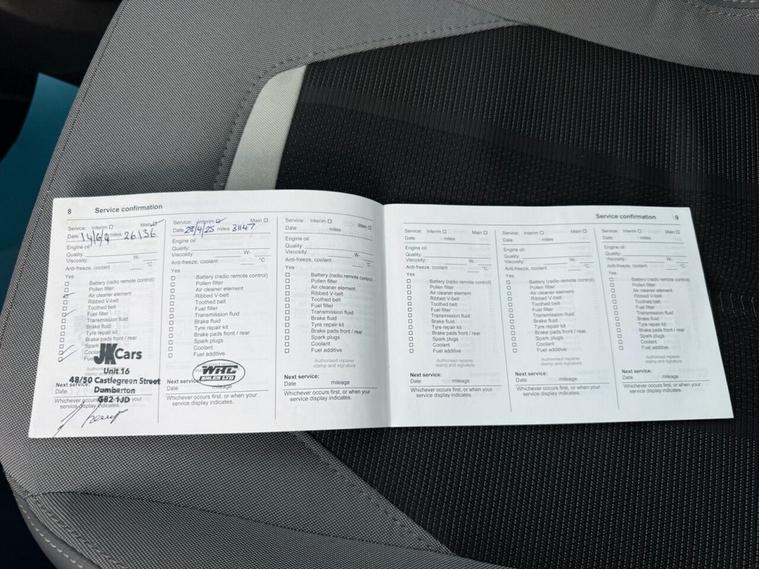 8 Service confirmation
Service: Interim ☐ Main ☐
Date miles 26136
Engine oil
Quality:
Viscosity: W-
Anti-freeze, coolant °C
Yes
☐ Battery (radio remote control)
☐ Pollen filter
☐ Air cleaner element
☐ Ribbed V-belt
☐ Toothed belt
☐ Fuel filter
☐ Transmission fluid
☐ Brake fluid
☐ Tyre repair kit
☐ Brake pads front / rear
☐ Spark plugs
JK Cars
Unit 16
48/50 Castlegreen Street
Dumbarton
G82 1JD
Next service:
Date
Service: Interim ☐ Main ☐
Date 28/4/25 miles 31147
Engine oil
Quality:
Viscosity: W-
Anti-freeze, coolant °C
Yes
☐ Battery (radio remote control)
☐ Pollen filter
☐ Air cleaner element
☐ Ribbed V-belt
☐ Toothed belt
☐ Fuel filter
☐ Transmission fluid
☐ Brake fluid
☐ Tyre repair kit
☐ Brake pads front / rear
☐ Spark plugs
☐ Coolant
☐ Fuel additive
WHC
Next service:
Date
Whichever occurs first, or when your
service display indicates.
Service: Interim ☐ Main ☐
Date miles
Engine oil
Quality:
Viscosity: W-
Anti-freeze, coolant °C
Yes
☐ Battery (radio remote control)
☐ Pollen filter
☐ Air cleaner element
☐ Ribbed V-belt
☐ Toothed belt
☐ Fuel filter
☐ Transmission fluid
☐ Brake fluid
☐ Tyre repair kit
☐ Brake pads front / rear
☐ Spark plugs
☐ Coolant
☐ Fuel additive
Authorised repairer
stamp and signature
Next service:
Date mileage
Whichever occurs first, or when your
service display indicates.
Service confirmation 9
Service: Interim ☐ Main ☐
Date miles
Engine oil
Quality:
Viscosity: W-
Anti-freeze, coolant °C
Yes
☐ Battery (radio remote control)
☐ Pollen filter
☐ Air cleaner element
☐ Ribbed V-belt
☐ Toothed belt
☐ Fuel filter
☐ Transmission fluid
☐ Brake fluid
☐ Tyre repair kit
☐ Brake pads front / rear
☐ Spark plugs
☐ Coolant
☐ Fuel additive
Authorised repairer
stamp and signature
Next service:
Date mileage
Whichever occurs first, or when your
service display indicates.
Service: Interim ☐ Main ☐
Date miles
Engine oil
Quality:
Viscosity: W-
Anti-freeze, coolant °C
Yes
☐ Battery (radio remote control)
☐ Pollen filter
☐ Air cleaner element
☐ Ribbed V-belt
☐ Toothed belt
☐ Fuel filter
☐ Transmission fluid
☐ Brake fluid
☐ Tyre repair kit
☐ Brake pads front / rear
☐ Spark plugs
☐ Coolant
☐ Fuel additive
Authorised repairer
stamp and signature
Next service:
Date mileage
Whichever occurs first, or when your
service display indicates.
Service: Interim ☐ Main ☐
Date miles
Engine oil
Quality:
Viscosity: W-
Anti-freeze, coolant °C
Yes
☐ Battery (radio remote control)
☐ Pollen filter
☐ Air cleaner element
☐ Ribbed V-belt
☐ Toothed belt
☐ Fuel filter
☐ Transmission fluid
☐ Brake fluid
☐ Tyre repair kit
☐ Brake pads front / rear
☐ Spark plugs
☐ Coolant
☐ Fuel additive
Authorised repairer
stamp and signature
Next service:
Date mileage
Whichever occurs first, or when your
service display indicates.